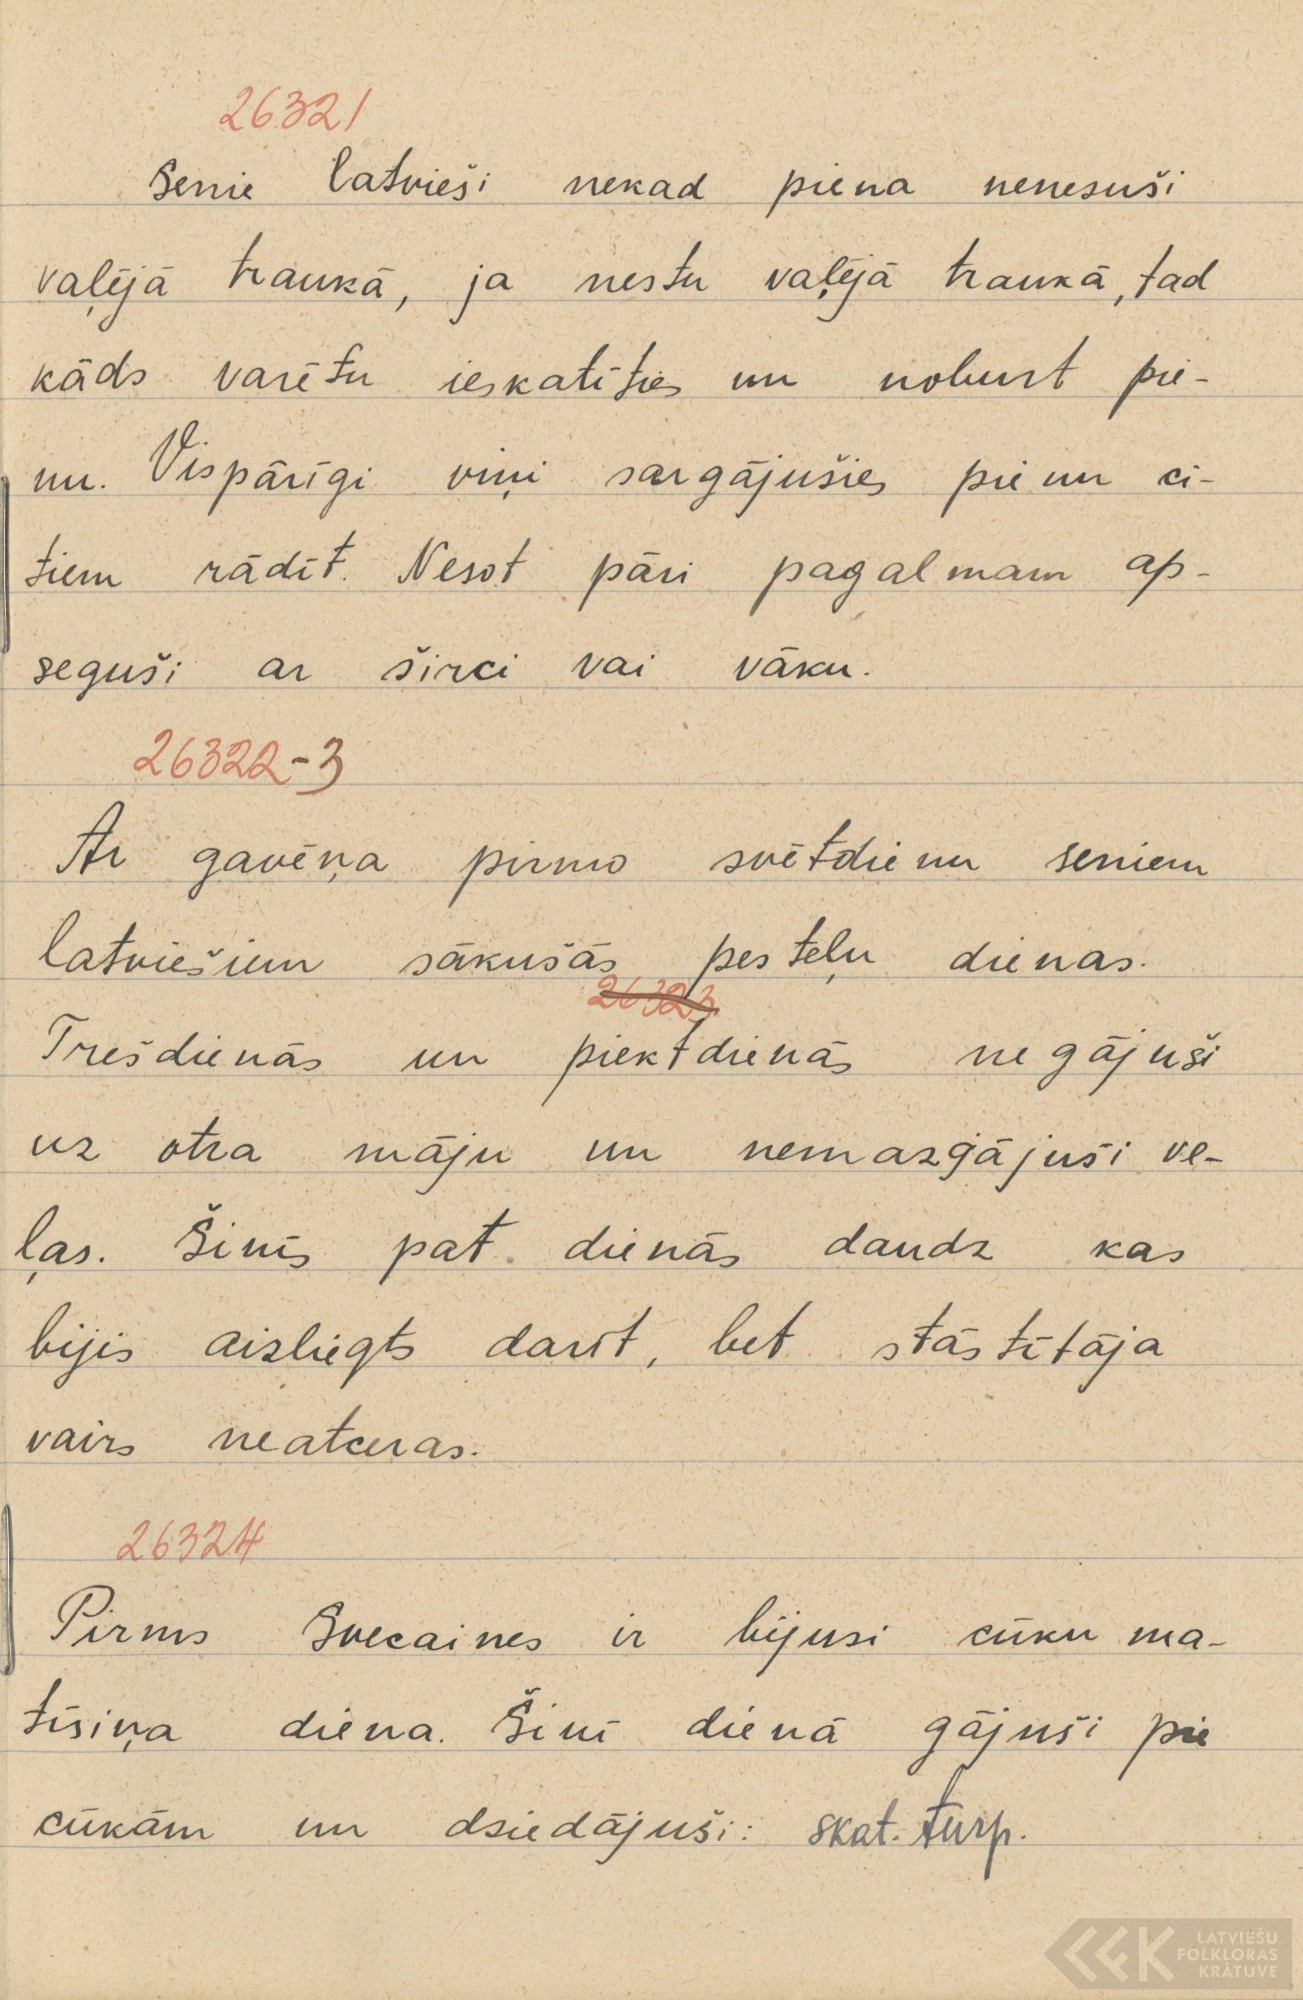 26321
Senie latvieši nekad piena nenesuši
vaļējā traukā, ja nestu vaļējā traukā, tad
kāds varētu ieskatīties un noburt pie-
nu. Vispārīgi viņi sargājušies pienu ci-
tiem rādīt. Nesot pāri pagalmam ap-
seguši ar širci vai vāku.
26322-3
Ar gavēņa pirmo svētdienu seniem
latviešiem sākušās pesteļu dienas.
26323
Trešdienās un piektdienās negājuši
uz otra māju un nemazgājuši ve-
ļas. Šinīs pat dienās daudz kas
bijis aizliegts darīt, bet stāstītāja
vairs neatceras.
26324
Pirms Svecaines ir bijusi cūku ma-
tīsiņa diena. Šinī dienā gājuši pie
cūkām un dziedājuši: skat. turp.
LATVIEŠU
FOLKLORAS
KRĀTUVE